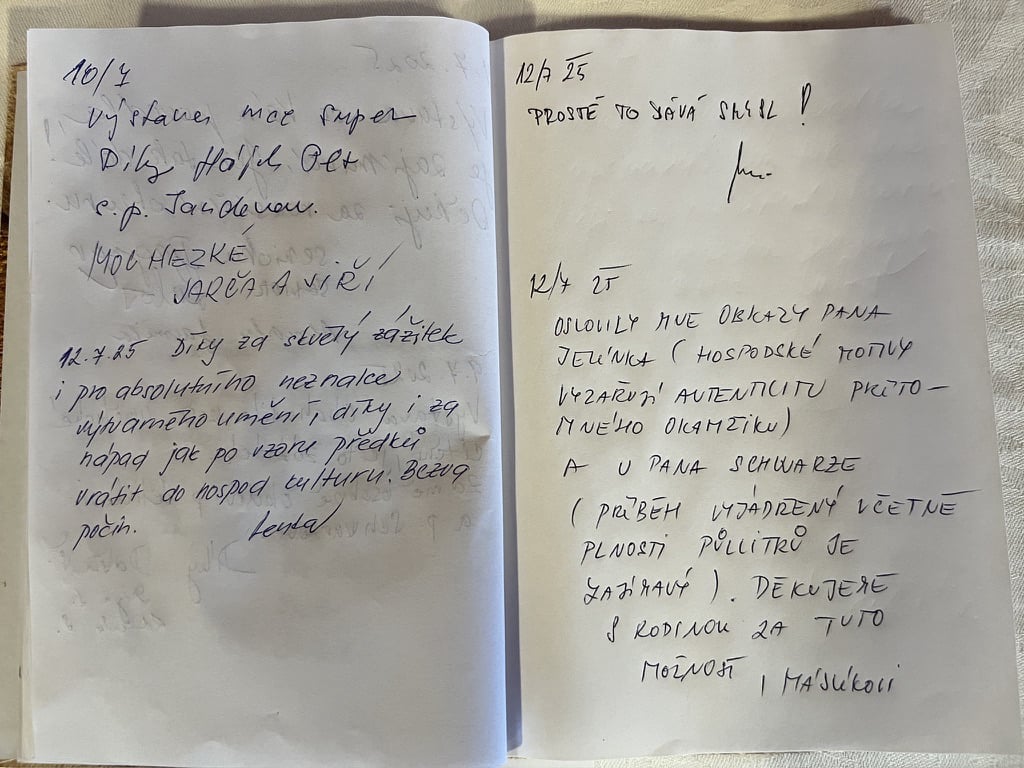 10/7
Výstava moc super
Díky Hájek Petr
s.p.
MOC HEZKÉ
JARČA A JIŘÍ
12.7.25 Díky za skvělý zážitek
i pro absolutního neznalce
výtvarného umění i díky i za
nápad jak po vzoru předků
vrátit do hospod kulturu. Bezva
počin. Lenka
12/7 25
PROSTĚ TO DÁVÁ SMYSL!
12/7 25
OSLOVILY MVE OBRAZY PANA
JELÍNKA (HOSPODSKÉ MOTIVY
VYZAŘUJÍ AUTENTICITU PŘÍTO-
MNÉHO OKAMŽIKU)
A U PANA SCHWARZE
(PŘÍBĚH VYJÁDŘENÝ VČETNĚ
PLNOSTI PŮLLITRŮ JE
ZAJÍMAVÝ). DĚKUJEME
S RODINOU ZA TUTO
MOŽNOST, MÁSLÍKOVI